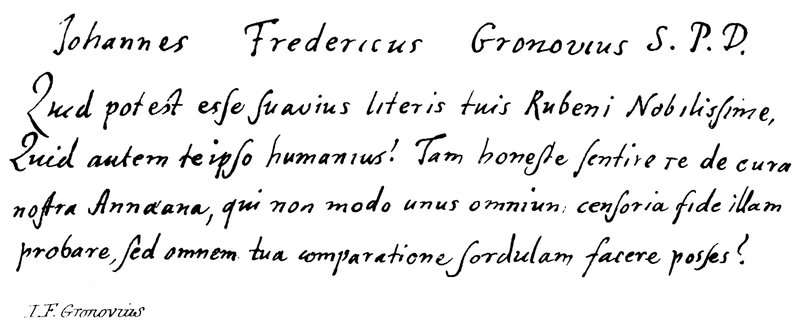 Johannes Fredericus Gronovius S. P. D.
Quid potest esse suavius literis tuis Rubeni Nobilissime,
Quid autem te ipso humanius! Tam honeste sentire te de cura
nostra Annæana, qui non modo unus omnium censoria fide illam
probare, sed omnem tua comparatione sordulam facere posses?
J. F. Gronovius